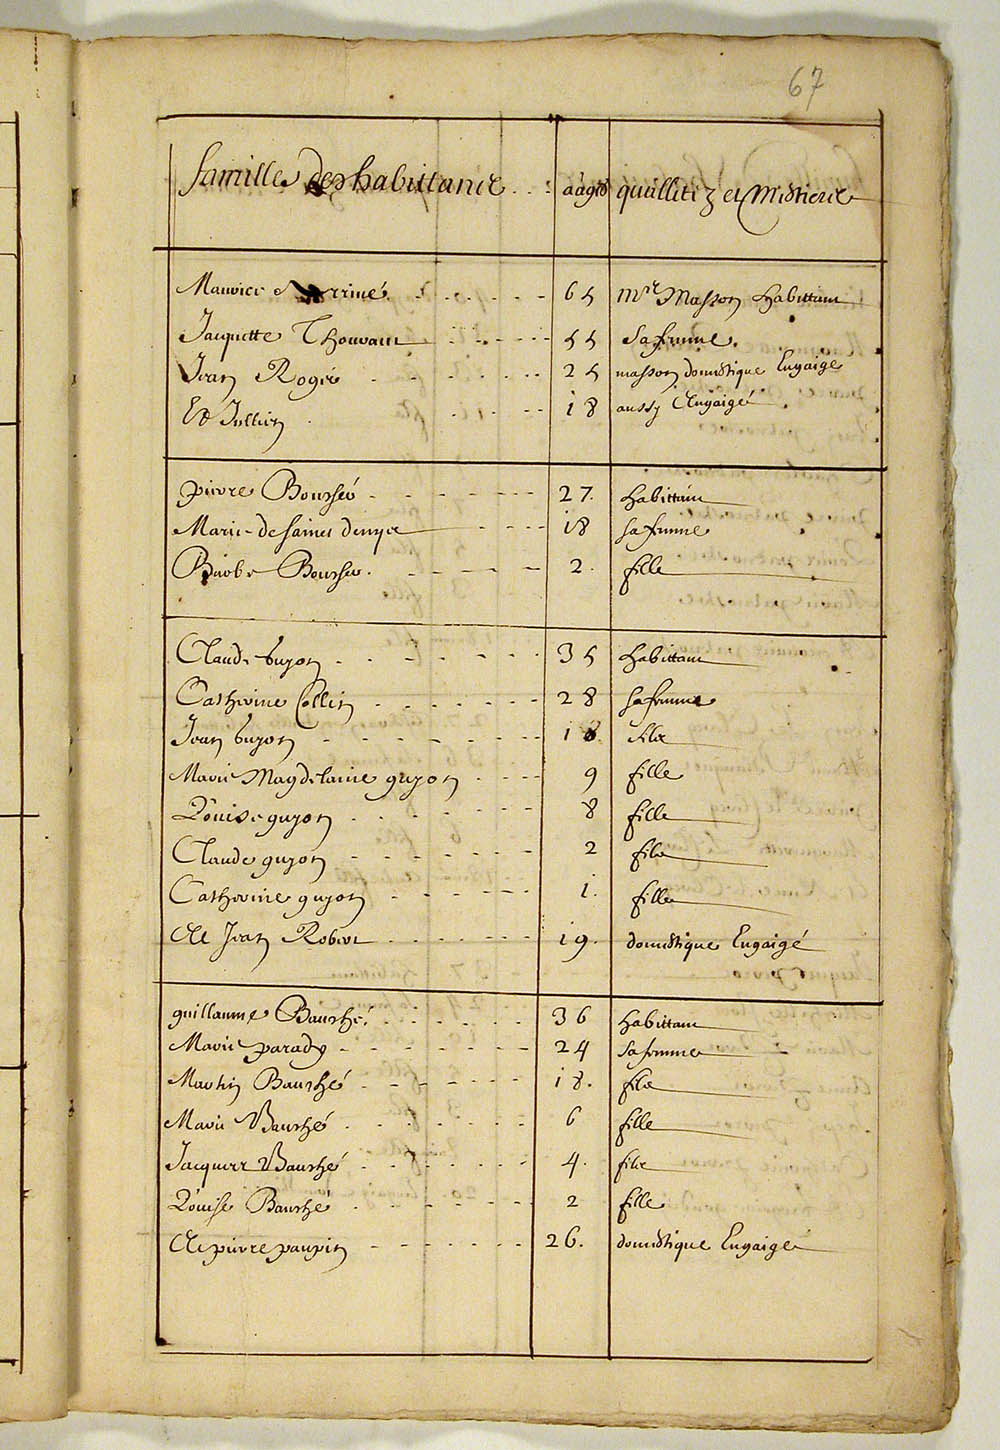 67
familles des habittans aages quallitez et mestiers
Maurice Arrivé 65 Mre Masson habittant
Jacquette Thouvant 55 Sa femme.
Jean Rogié 25 masson domestique Engaigé
Et Jullien 18 aussy Engaigé
pierre Boursier 27. habittant
Marie de saines denys 18 sa femme
Barbe Boursier. 2. fille
Claude Guyon 35 habittant
Catherine Collin 28 sa femme
Jean Guyon 18 fils
Marie Magdelaine guyon 9 fille
Louise guyon 8 fille
Claude guyon 2 fils
Catherine guyon 1. fille
Et Jean Robert 19. domestique Engaigé
guillaume Bauché. 36 habittant
Marie parady 24 sa femme
Martin Bauché 18. fils
Marie Bauché 6 fille
Jacques Bauché 4. fils
Louise Bauché 2 fille
Et pierre paupin 26. domestique Engaigé